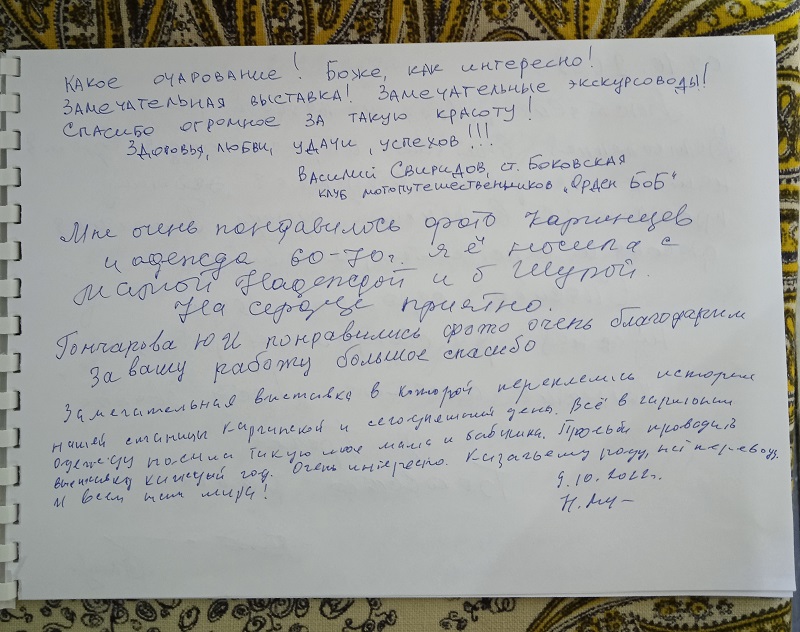 Какое очарование! Боже, как интересно!
Замечательная выставка! Замечательные экскурсоводы!
Спасибо огромное за такую красоту!
Здоровья, любви, удачи, успехов!!!
Василий Свиридов, ст. Боковская
клуб мотопутешественников „Орден БоБ“
Мне очень пондравилось фото каргинцев
и одежда 60-70г. я её носила с
мамой Надеждой и б Шурой.
На сердце приятно.
Гончарова Ю И понравились фото очень благодарим
За вашу работу большое спасибо
Замечательная выставка в которой переплелись история
нашей станицы Каргинской и сегодняшний день. Всё в гармонии
Одежду носили такую мои мама и бабушка. Просьба проводить
выставку каждый год. Очень интересно. Казачьему роду, нет переводу.
И всем нам мира!
9.10.2022г.